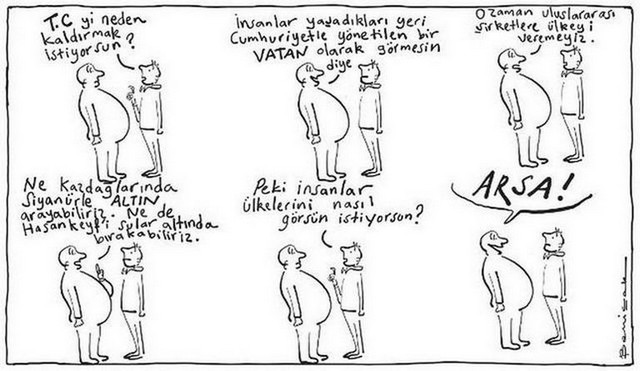 T.C yi neden
kaldırmak
istiyorsun?
İnsanlar yaşadıkları yeri
Cumhuriyetle yönetilen bir
VATAN olarak görmesin
diye
O zaman uluslararası
şirketlere ülkeyi
veremeyiz.
Ne Kazdağlarında
Siyanürle ALTIN
arayabiliriz. Ne de
Hasankeyf'i sular altında
bırakabiliriz.
Peki insanlar
ülkelerini nasıl
görsün istiyorsun?
ARSA!